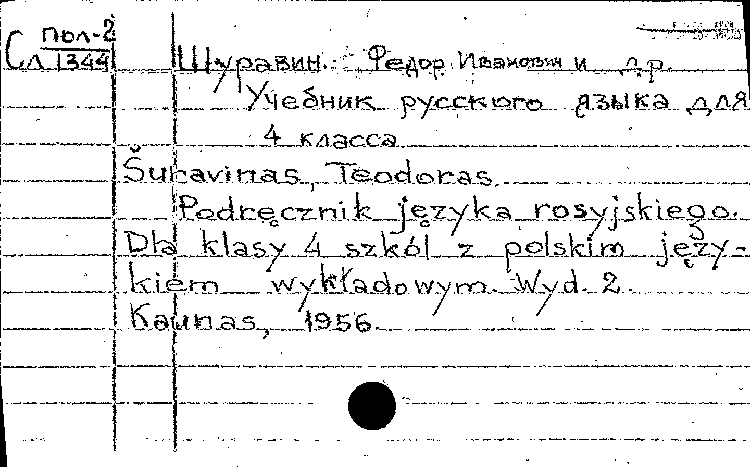 Пол-2
Сл 1344
Шуравин. Федор Иванович и др.
Учебник русского языка для
4 класса
Šuravinas, Teodoras.
Podręcznik języka rosyjskiego.
Dla klasy 4 szkół z polskim języ-
kiem wykładowym. Wyd. 2.
Kaunas, 1956.